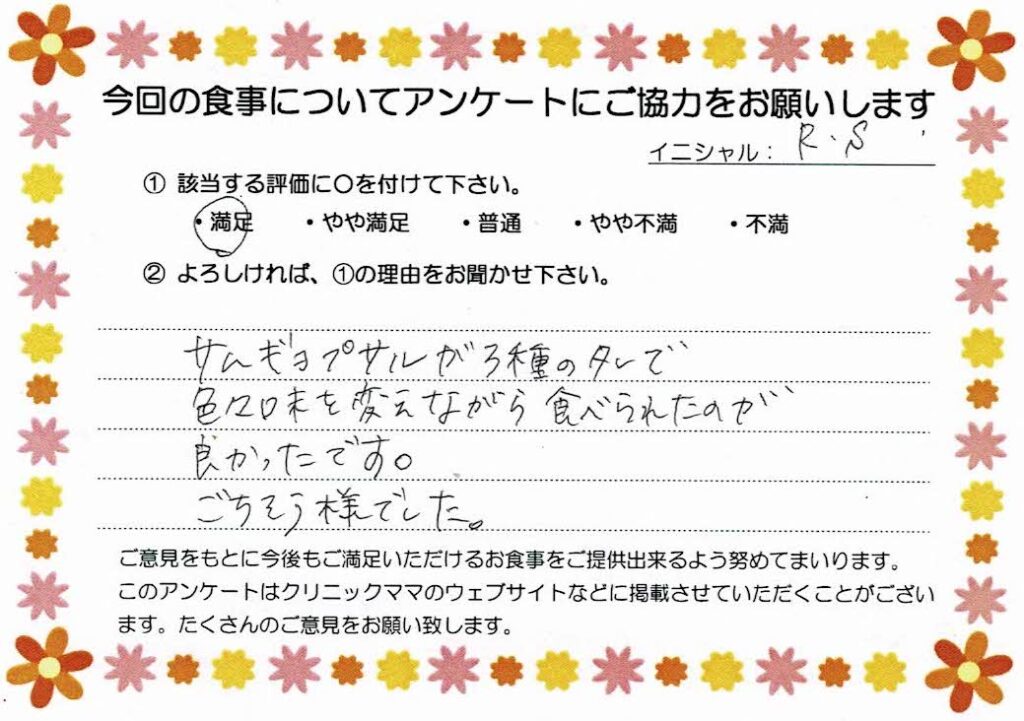 今回の食事についてアンケートにご協力をお願いします
イニシャル： R・S
① 該当する評価に○を付けて下さい。
・満足 ・やや満足 ・普通 ・やや不満 ・不満
② よろしければ、①の理由をお聞かせ下さい。
サムギョプサルが3種のタレで
色々口味を変えながら食べられたのが
良かったです。
ごちそう様でした。
ご意見をもとに今後もご満足いただけるお食事をご提供出来るよう努めてまいります。
このアンケートはクリニックママのウェブサイトなどに掲載させていただくことがござい
ます。たくさんのご意見をお願い致します。